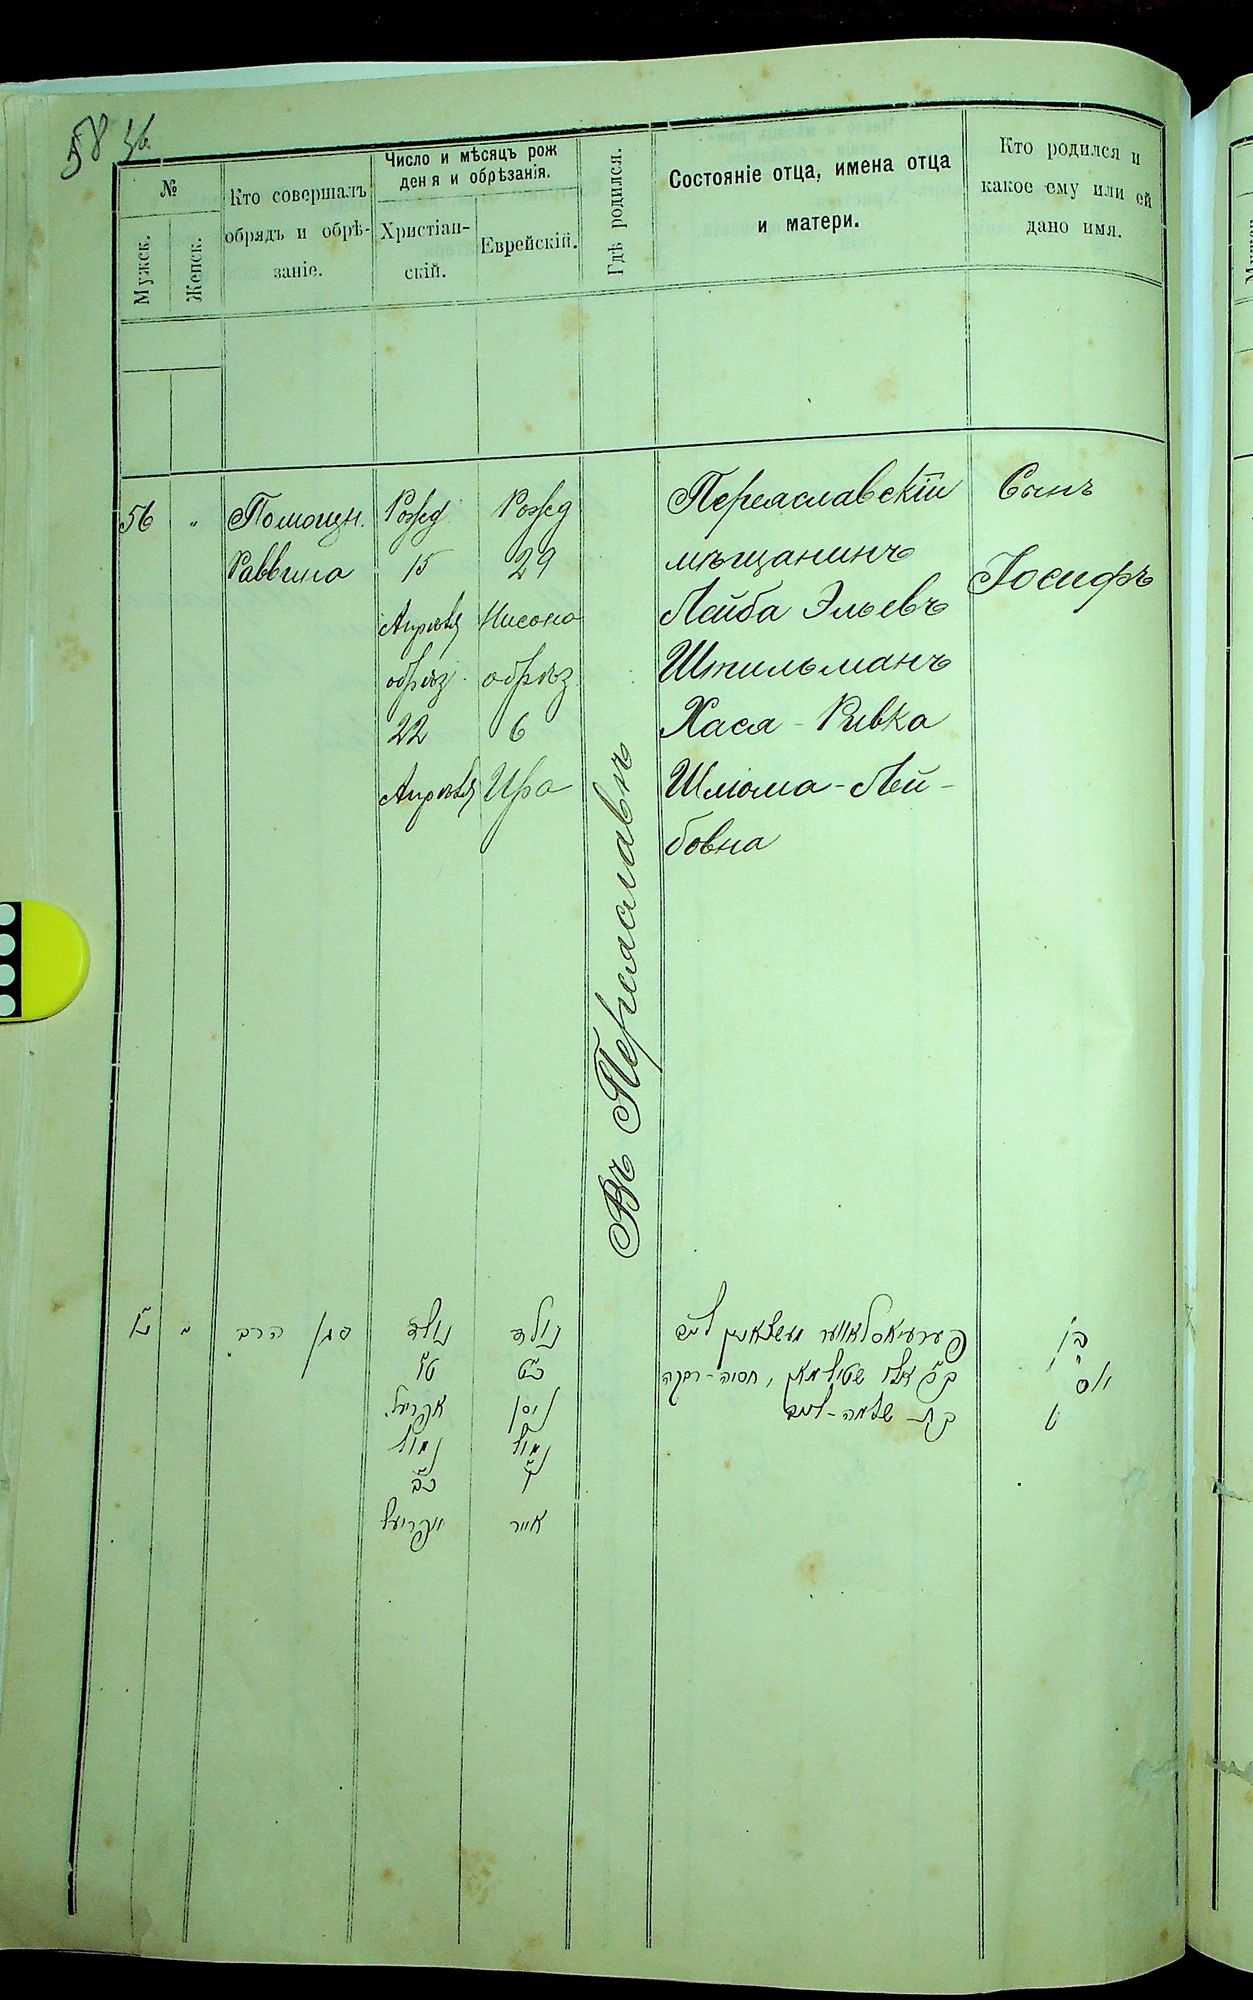 58
№
Мужск.
Женск.
Кто совершалъ
обрядъ и обрѣ-
заніе.
Число и мѣсяцъ рож
денія и обрѣзанія.
Христіан-
скій.
Еврейскій.
Гдѣ родился.
Состояніе отца, имена отца
и матери.
Кто родился и
какое ему или ей
дано имя.
56
"
Помощн.
Раввина
Рожд
15
Апрѣля
обрѣз.
22
Апрѣля
Рожд
29
Нисона
обрѣз
6
Ира
Въ Переяславѣ
Переяславскій
мѣщанинъ
Лейба Эльевъ
Штильманъ
Хася - Ривка
Шлiома - Лей-
бовна
Сынъ
Іосифъ
הרב
נולד
ט"ו
אפריעל
נמול
כ"ב
נולד
כ"ט
ניסן
נמול
אייר
פערעיאסלאווער
שטילמאן, חסיה - רבקה
בת - שלמה - ליב
בן